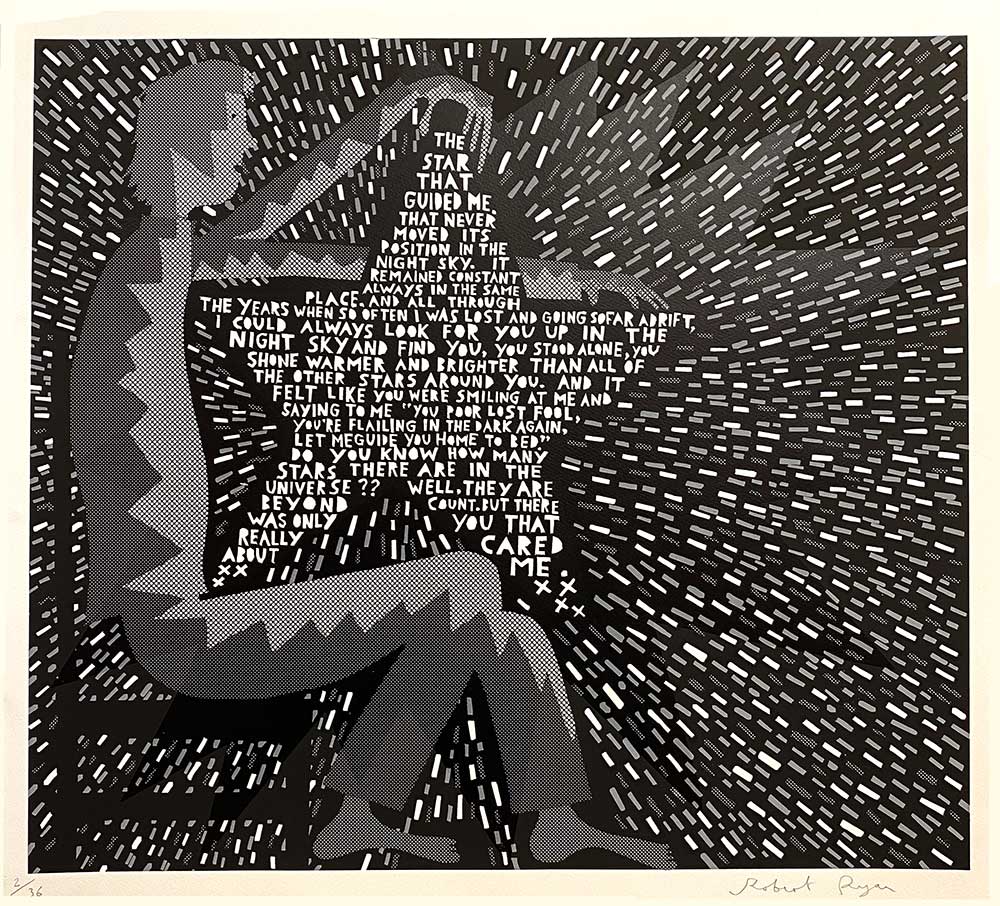 THE
STAR
THAT
GUIDED ME.
THAT NEVER
MOVED ITS
POSITION IN THE
NIGHT SKY. IT
REMAINED CONSTANT
ALWAYS IN THE SAME
PLACE. AND ALL THROUGH
THE YEARS WHEN SO OFTEN I WAS LOST AND GOING SO FAR ADRIFT,
I COULD ALWAYS LOOK FOR YOU UP IN THE
NIGHT SKY AND FIND YOU, YOU STOOD ALONE, YOU
SHONE WARMER AND BRIGHTER THAN ALL OF
THE OTHER STARS AROUND YOU. AND IT
FELT LIKE YOU WERE SMILING AT ME AND
SAYING TO ME "YOU POOR LOST FOOL,
YOU'RE FLAILING IN THE DARK AGAIN,
LET ME GUIDE YOU HOME TO BED"
DO YOU KNOW HOW MANY
STARS THERE ARE IN THE
UNIVERSE?? WELL, THEY ARE
BEYOND COUNT. BUT THERE
WAS ONLY YOU THAT
REALLY CARED
ABOUT ME.
xx xxxx
2/36 Robert Ryan